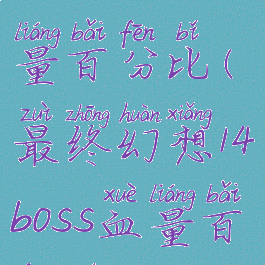 liáng bǎi fēn bǐ
量百分比(
zuì zhōng huàn xiǎng
最终幻想14
xuè liáng bǎi
boss血量百